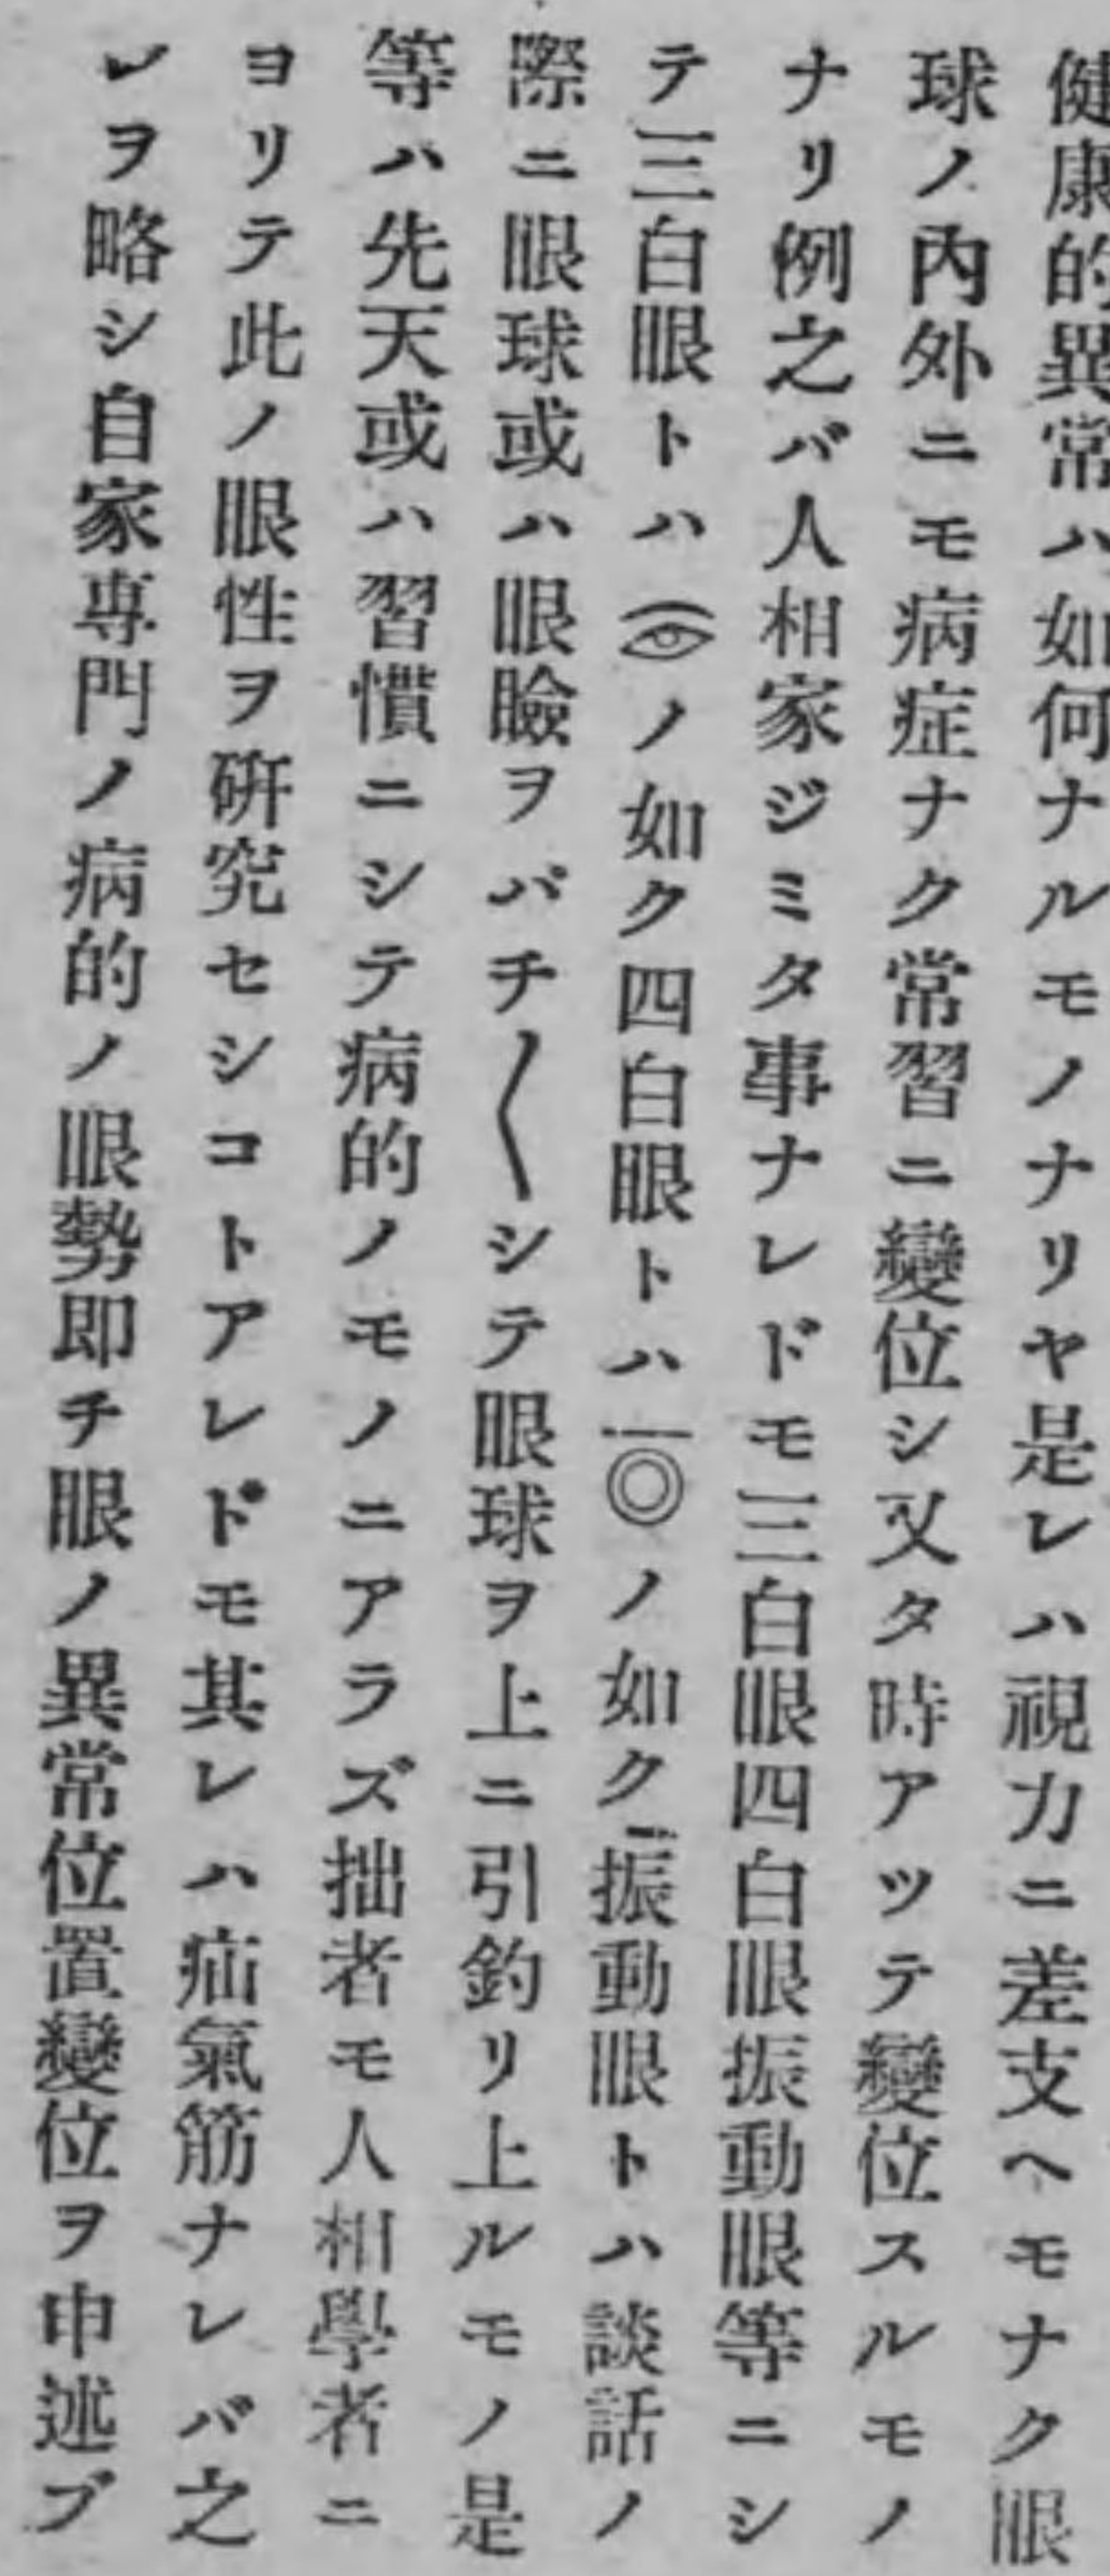 健康的異常ハ如何ナルモノナリヤ是レハ視力ニ差支ヘモナク眼
球ノ內外ニモ病症ナク常習ニ變位シ又タ時アツテ變位スルモノ
ナリ例之バ人相家ジミタ事ナレドモ三白眼四白眼振動眼等ニシ
テ三白眼トハノ如ク四白眼トハ◎ノ如ク振動眼トハ談話ノ
際ニ眼球或ハ眼瞼ヲパチ〱シテ眼球ヲ上ニ引釣リ上ルモノ是
等ハ先天或ハ習慣ニシテ病的ノモノニアラズ拙者モ人相學者ニ
ヨリテ此ノ眼性ヲ硏究セシコトアレドモ其レハ疝氣筋ナレバ之
レヲ略シ自家専門ノ病的ノ眼勢即チ眼ノ異常位置變位ヲ申述ブ